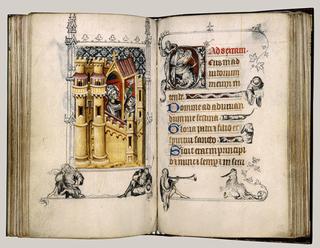 Ad sextam.
Deus in ad
iutorium
meum in
tende.
Domine ad adiuuan
dum me festina.
Gloria patri et filio et
spiritui sancto.
Sicut erat in principi
o et nunc et semper in secu